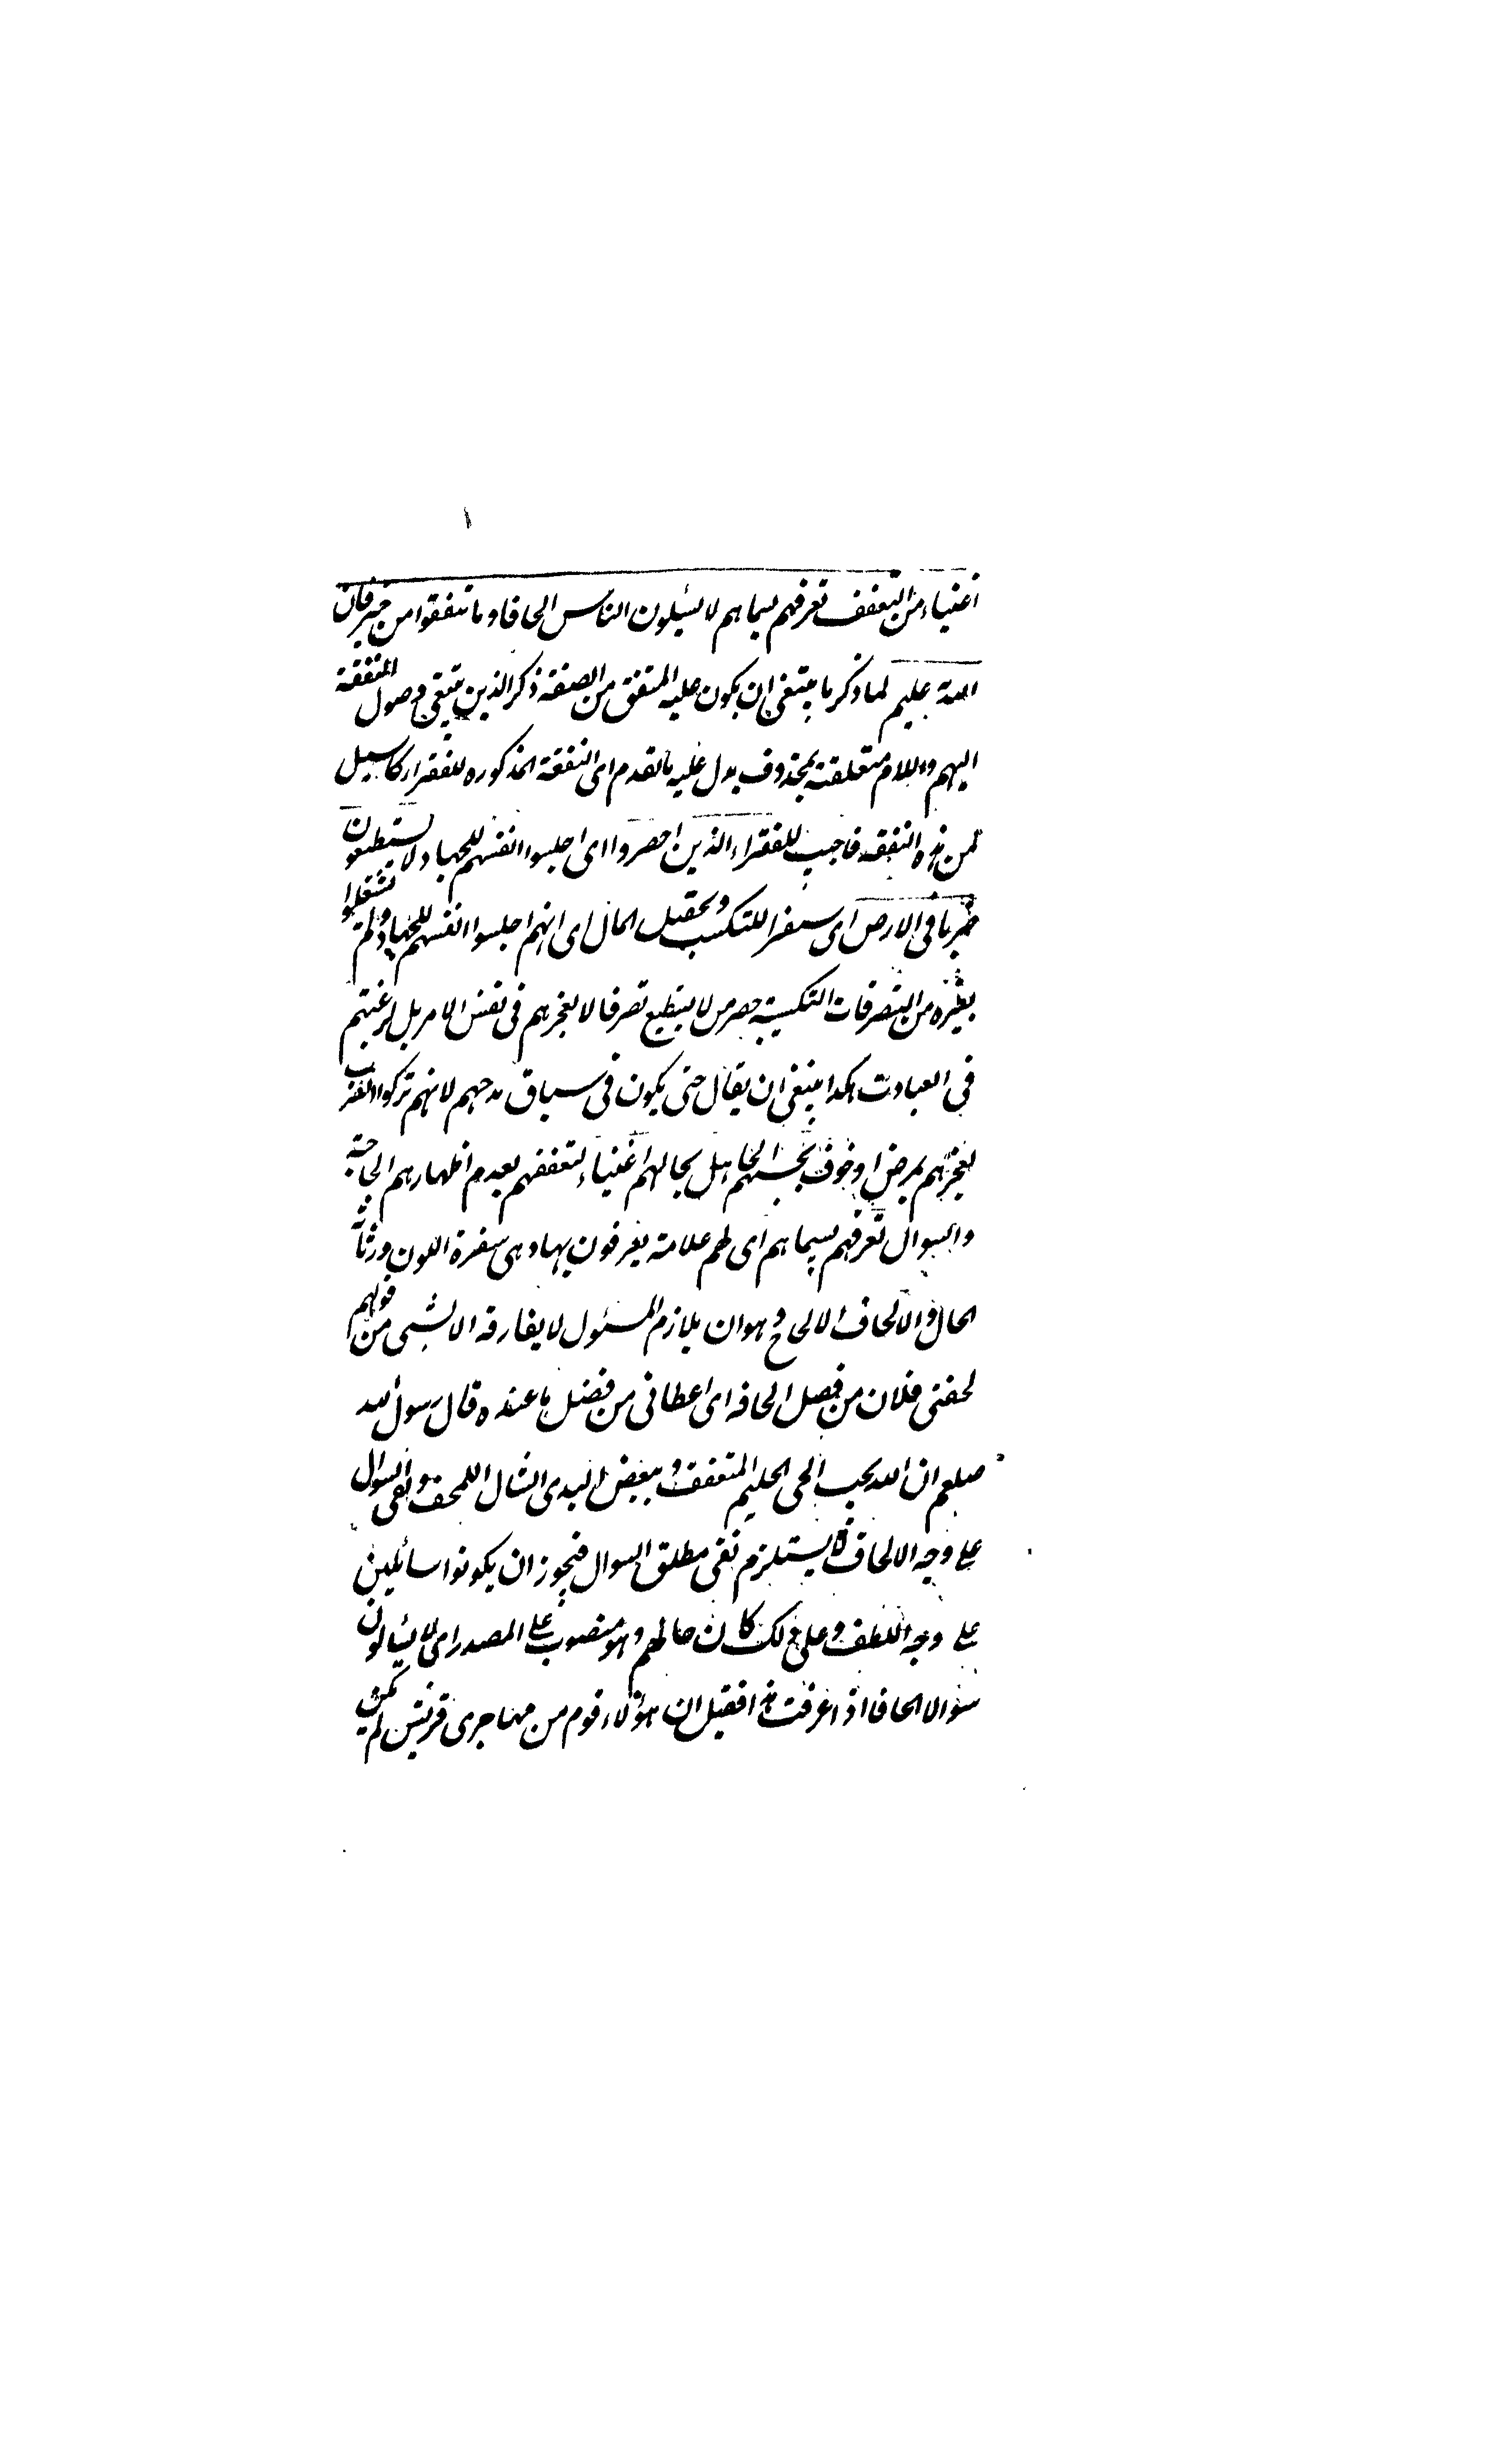 أغنياء من التعفف تعرفهم بسيماهم لا يسئلون الناس الحافا وما تنفقوا من خير فان
الله به عليم لما ذكر ما ينبغي ان يكون عليه المنفق من الصفة ذكر الذين ينبغي وصول النفقة
اليهم واللام متعلقة بمحذوف يدل عليه ما تقدم اى النفقة المذكوره للفقراء كما سيل
لمن هذه النفقه فاجيب للفقراء الذين احصروا اى احبسوا انفسهم للجهاد لا يستطيعون
ضربا في الارض اى سفرا للتكسب وتحصيل المال اى انهم احبسوا انفسهم للجهاد ولم يشتغلوا
بغيره من التصرفات التكسبية حصر من لا يستطيع تصرفا لا لعجزهم في نفس الامر بل لرغبتهم
في العبادت هكذا ينبغي ان يقال حتى يكون في سياق مدحهم لانهم تركوا الضرب
لعجزهم بمرض او خوف يحسبهم الجاهل بحالهم اغنياء لتعففهم بعدم اظهارهم الحاجة
والسوال تعرفهم بسيماهم اى لهم علامة يعرفون بها وهى صفرة اللون ورثاثة
الحال والالحاف الالحاح وهو ان يلازم المسئول لا يفارقه الا بشى من قولهم
لحفنى فلان من فضل لحافه اى اعطانى من فضل ما عنده قال رسول الله
صلعم ان الله يحب الحى الحليم المتعفف ويبغض البذى السال الملحف ونفى السوال
على وجه الالحاف لا يستلزم نفى مطلق السوال فيجوز ان يكونوا سائلين
على وجه اللطف وعلى ذلك كان حالهم وهو منصوب على المصدر اى لا يسألون
سوالا الحافا اذا عرفت هذا فقيل ان هؤلاء قوم من مهاجرى قريش لم يكن